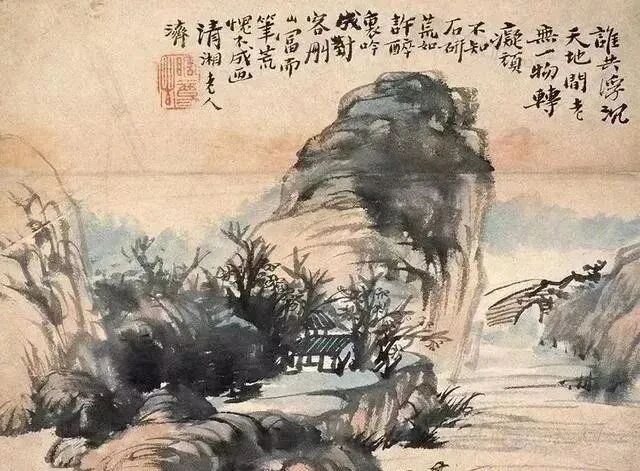 誰共浮沉
天地間老
無一物轉
癡頑
不知
石研
荒如
許醉
裏吟
成對
客刪
山富而
筆荒
愧不成画
清湘老人
濟